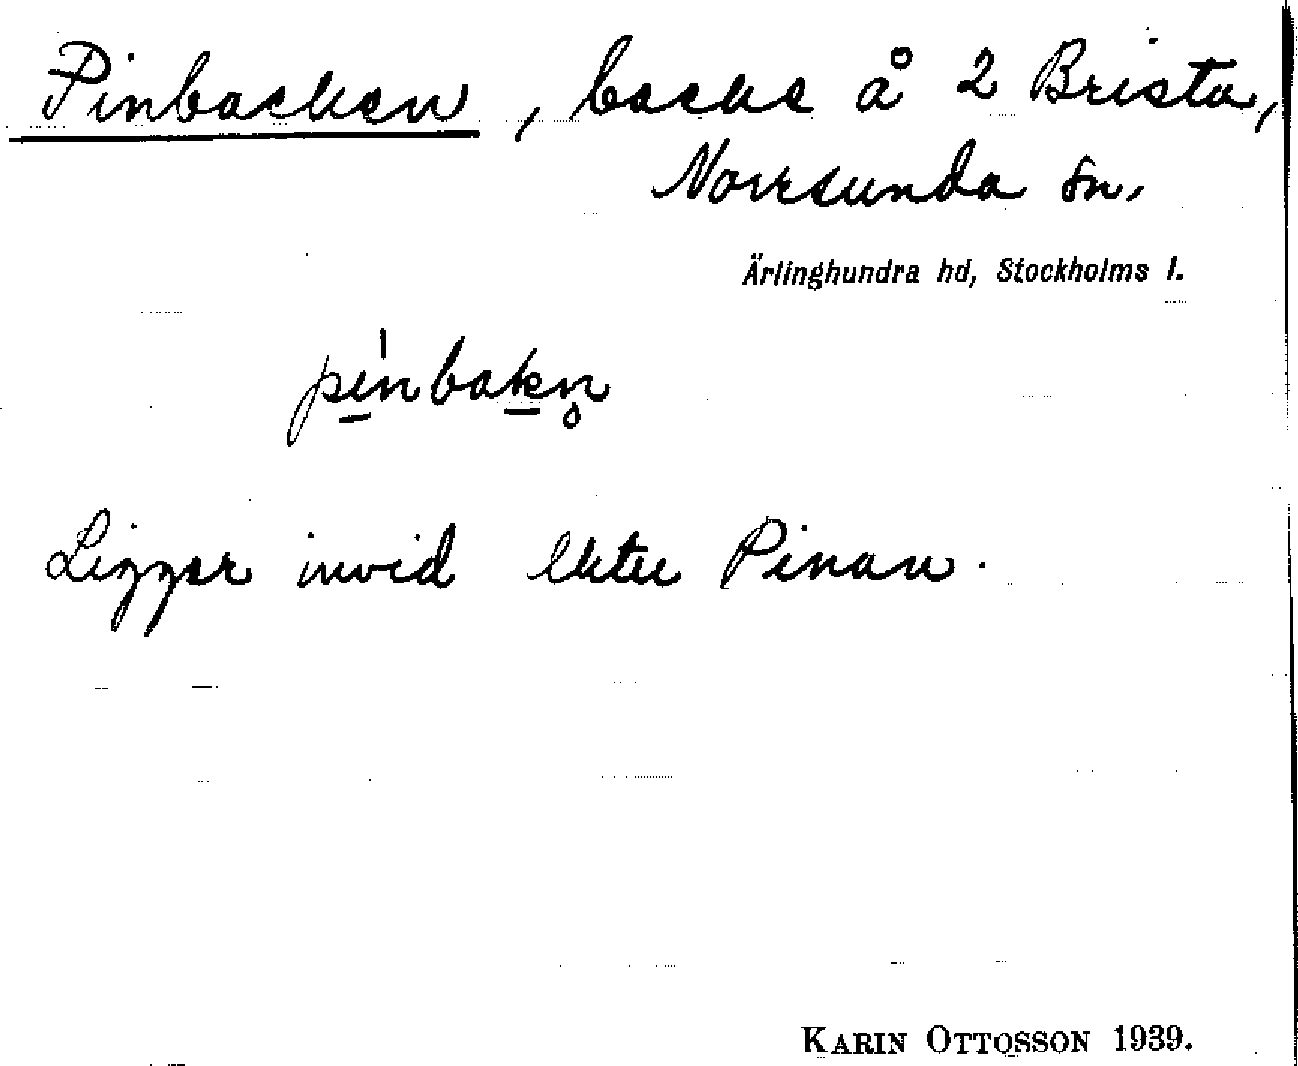 Pinbacken, backe å 2 Brista,
Norrsunda sn.
Ärlinghundra hd, Stockholms l.
pi̠nbak̠n̥
Ligger invid Pinan.
KARIN OTTOSSON 1939.